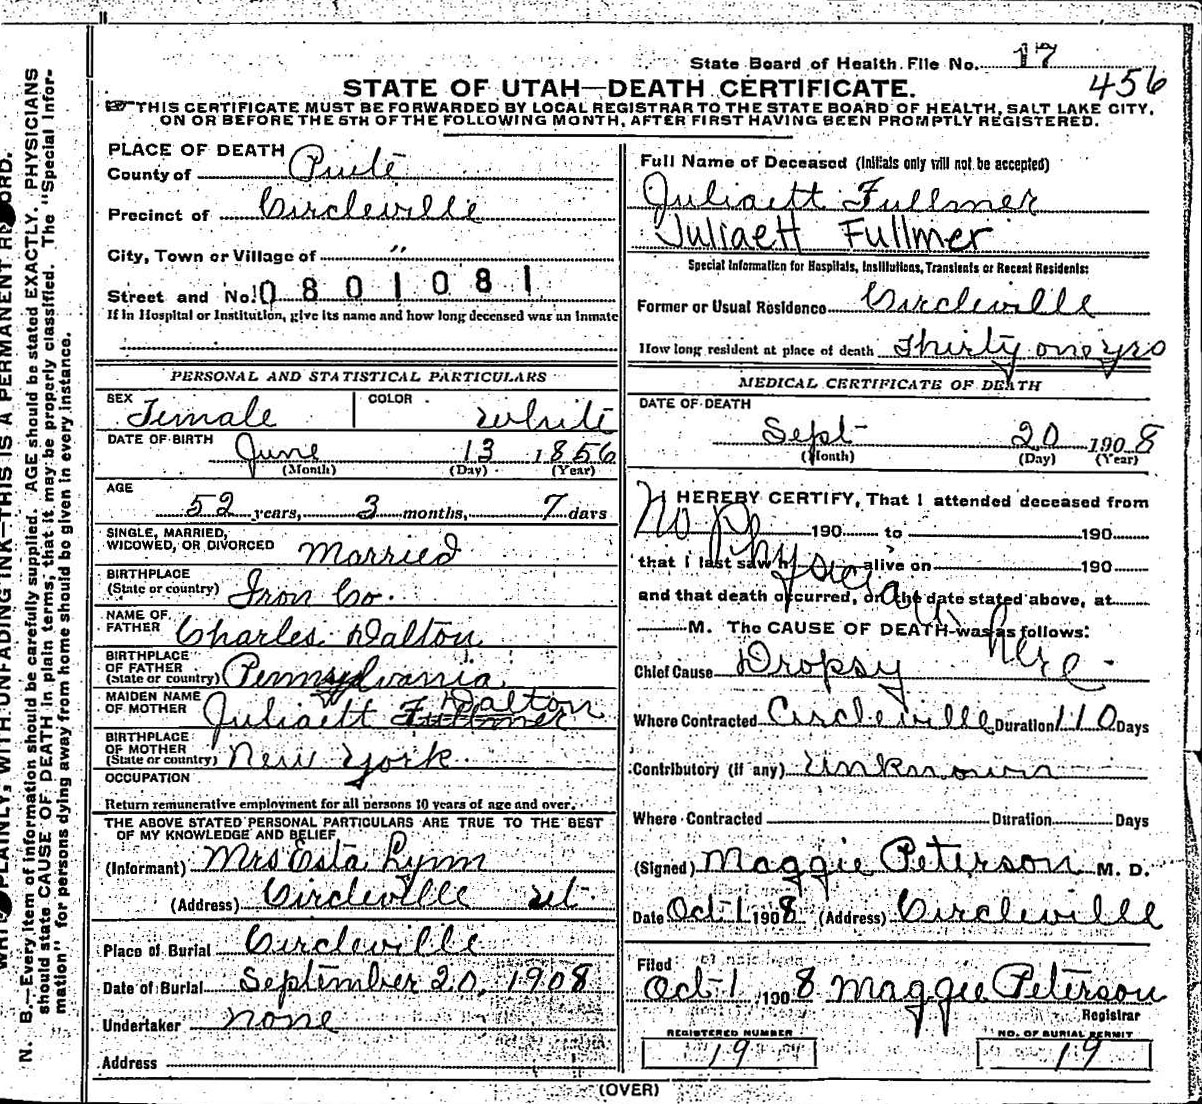 State Board of Health File No. 17
456
STATE OF UTAH—DEATH CERTIFICATE.
THIS CERTIFICATE MUST BE FORWARDED BY LOCAL REGISTRAR TO THE STATE BOARD OF HEALTH, SALT LAKE CITY,
ON OR BEFORE THE 5TH OF THE FOLLOWING MONTH, AFTER FIRST HAVING BEEN PROMPTLY REGISTERED.
PLACE OF DEATH
County of Piute
Precinct of Circleville
City, Town or Village of "
Street and No. 0801081
If in Hospital or Institution, give its name and how long deceased was an inmate
PERSONAL AND STATISTICAL PARTICULARS
SEX Female COLOR White
DATE OF BIRTH June 13 1856
(Month) (Day) (Year)
AGE
52 years, 3 months, 7 days
SINGLE, MARRIED,
WIDOWED, OR DIVORCED Married
BIRTHPLACE
(State or country) Iron Co.
NAME OF
FATHER Charles Dalton
BIRTHPLACE
OF FATHER
(State or country) Pennsylvania
MAIDEN NAME
OF MOTHER Juliaett Fullmer Dalton
BIRTHPLACE
OF MOTHER
(State or country) New York
OCCUPATION
Return remunerative employment for all persons 10 years of age and over.
THE ABOVE STATED PERSONAL PARTICULARS ARE TRUE TO THE BEST
OF MY KNOWLEDGE AND BELIEF
(Informant) Mrs Esta Lynn
(Address) Circleville Ut.
Place of Burial Circleville
Date of Burial September 20, 1908
Undertaker none
Address
Full Name of Deceased (Initials only will not be accepted)
Juliaett Fullmer
Juliaett Fullmer
Special Information for Hospitals, Institutions, Transients or Recent Residents:
Former or Usual Residence Circleville
How long resident at place of death Thirty one yrs
MEDICAL CERTIFICATE OF DEATH
DATE OF DEATH
Sept 20 1908
(Month) (Day) (Year)
I HEREBY CERTIFY, That I attended deceased from
190 to 190
that I last saw h alive on 190
and that death occurred, on the date stated above, at
M. The CAUSE OF DEATH was as follows:
No Physician here
Chief Cause Dropsy
Where Contracted Circleville Duration 110 Days
Contributory (if any) Unknown
Where Contracted Duration Days
(Signed) Maggie Peterson M. D.
Date Oct 1 1908 (Address) Circleville
Filed
Oct 1 1908 Maggie Peterson
Registrar
REGISTERED NUMBER
19
NO. OF BURIAL PERMIT
19
(OVER)
PLAINLY, WITH UNFADING INK—THIS IS A PERMANENT
N. B.—Every item of information should be carefully supplied. AGE should be stated EXACTLY. PHYSICIANS
should state CAUSE OF DEATH in plain terms, that it may be properly classified. The "Special Infor-
mation" for persons dying away from home should be given in every instance.